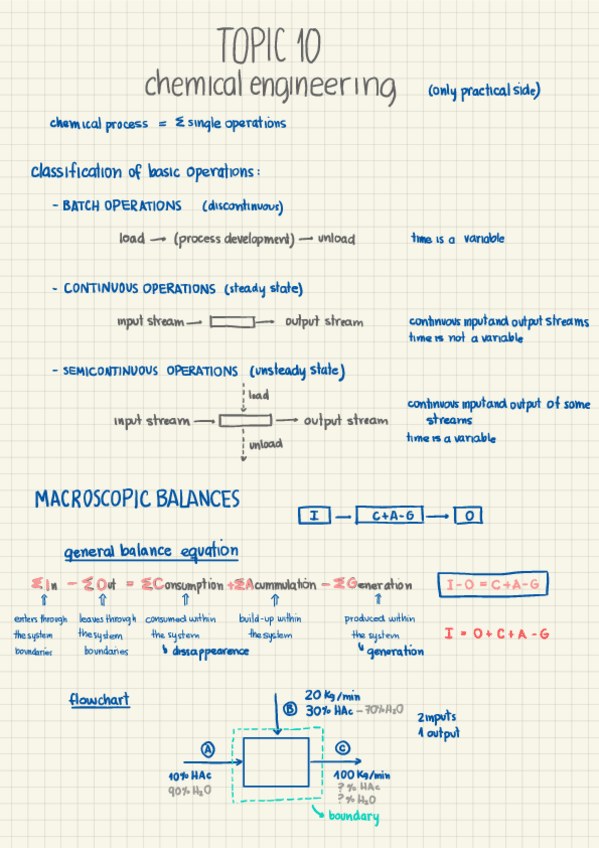 TOPIC 10
chemical engineering (only practical side)
chemical process = Σ single operations
classification of basic operations:
- BATCH OPERATIONS (discontinuous)
load → (process development) → unload time is a variable
- CONTINUOUS OPERATIONS (steady state)
input stream → → output stream continuous input and output streams
time is not a variable
- SEMICONTINUOUS OPERATIONS (unsteady state)
load
input stream → → output stream continuous input and output of some
streams
time is a variable
unload
MACROSCOPIC BALANCES
I — C+A-G → O
general balance equation
ΣIn - ΣOut = ΣConsumption + ΣAcummulation - ΣGeneration I-O = C+A-G
enters through leaves through consumed within build-up within produced within
the system the system the system the system the system
boundaries boundaries ↳ dissappearence ↳ generation
I = O + C + A - G
flowchart
B 20 Kg/min
30% HAc - 70% H2O
2 inputs
1 output
A C
10% HAc 100 Kg/min
90% H2O ? % HAc
? % H2O
boundary